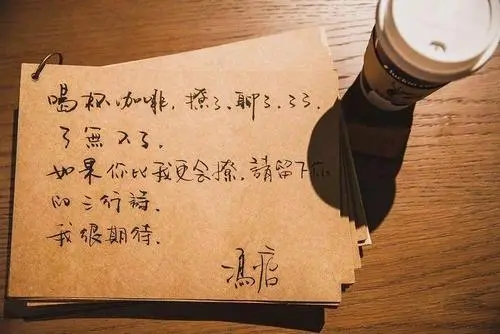 喝杯咖啡,撩了、聊了、了了,
了無入了.
如果你比我更会撩,請留下你
的三行詩.
我很期待.
馮唐